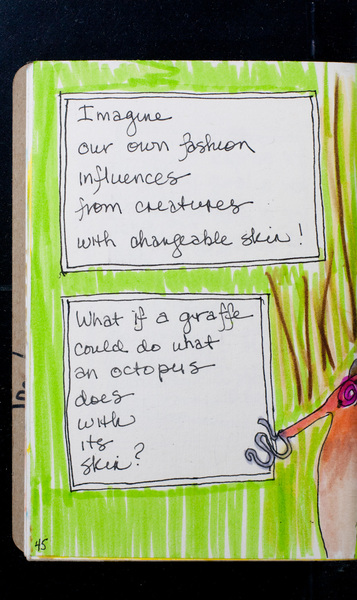 Imagine
our own fashion
influences
from creatures
with changeable skin!
What if a giraffe
could do what
an octopus
does
with
its
skin?
45